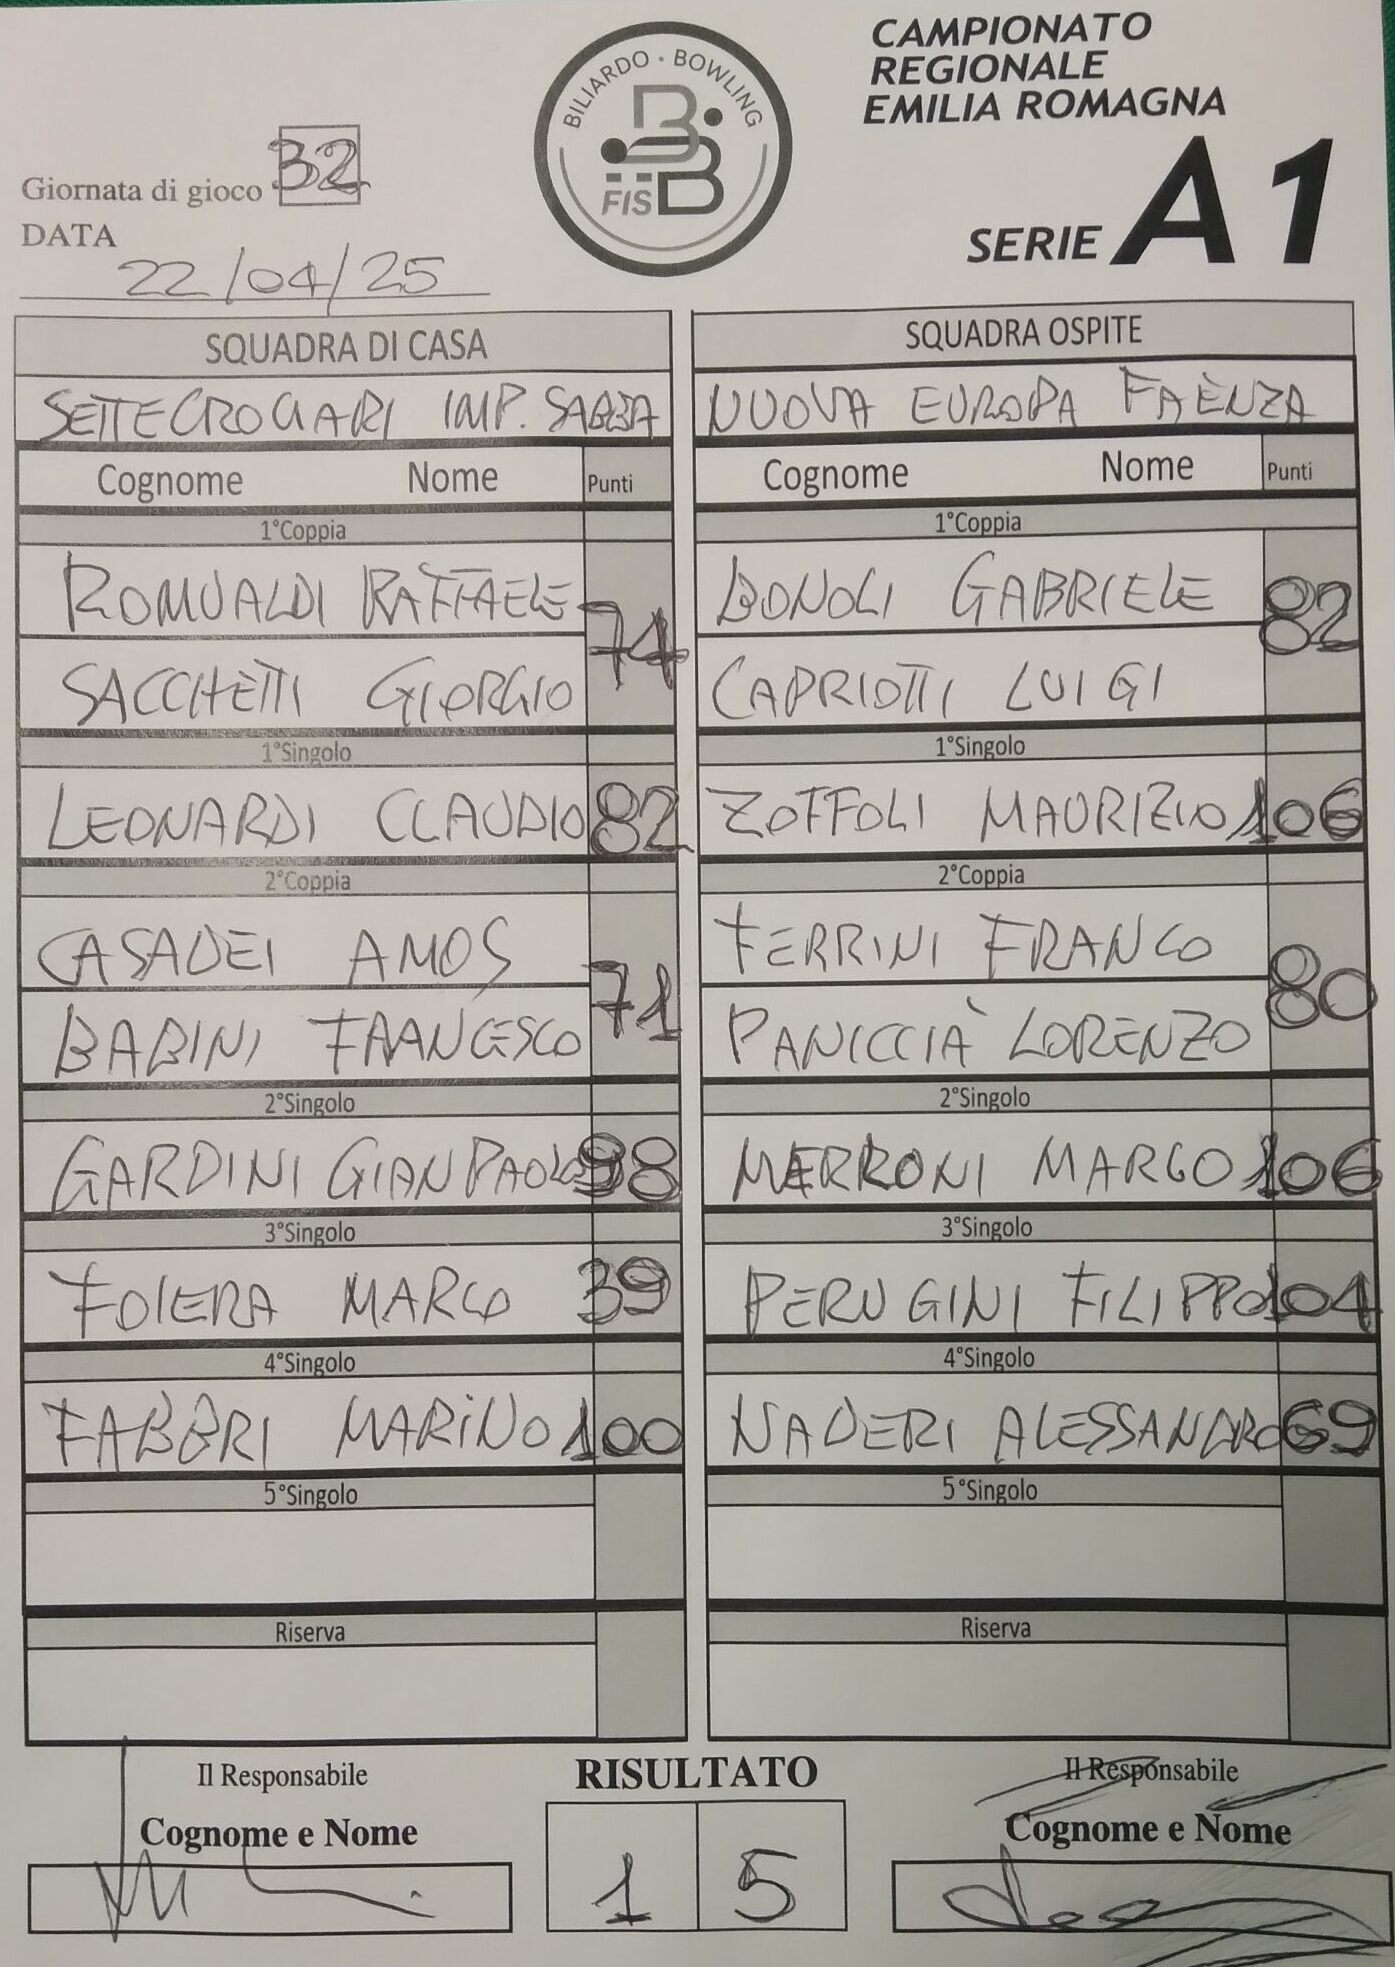 BILIARDO · BOWLING
FISBB
CAMPIONATO
REGIONALE
EMILIA ROMAGNA
SERIE A1
Giornata di gioco 32
DATA
22/04/25
SQUADRA DI CASA
SETTECROCIARI IMP. SABBA
Cognome Nome Punti
1°Coppia
ROMUALDI RAFFAELE
74
SACCHETTI GIORGIO
1°Singolo
LEONARDI CLAUDIO 82
2°Coppia
CASADEI AMOS
71
BABINI FRANCESCO
2°Singolo
GARDINI GIANPAOLO 98
3°Singolo
FOIERA MARCO 39
4°Singolo
FABBRI MARINO 100
5°Singolo
Riserva
SQUADRA OSPITE
NUOVA EUROPA FAENZA
Cognome Nome Punti
1°Coppia
BONOLI GABRIELE
82
CAPRIOTTI LUIGI
1°Singolo
ZOFFOLI MAURIZIO 106
2°Coppia
FERRINI FRANCO
80
PANICCIÀ LORENZO
2°Singolo
MERRONI MARCO 106
3°Singolo
PERUGINI FILIPPO 104
4°Singolo
NADERI ALESSANDRO 69
5°Singolo
Riserva
Il Responsabile
Cognome e Nome
RISULTATO
1 5
Il Responsabile
Cognome e Nome